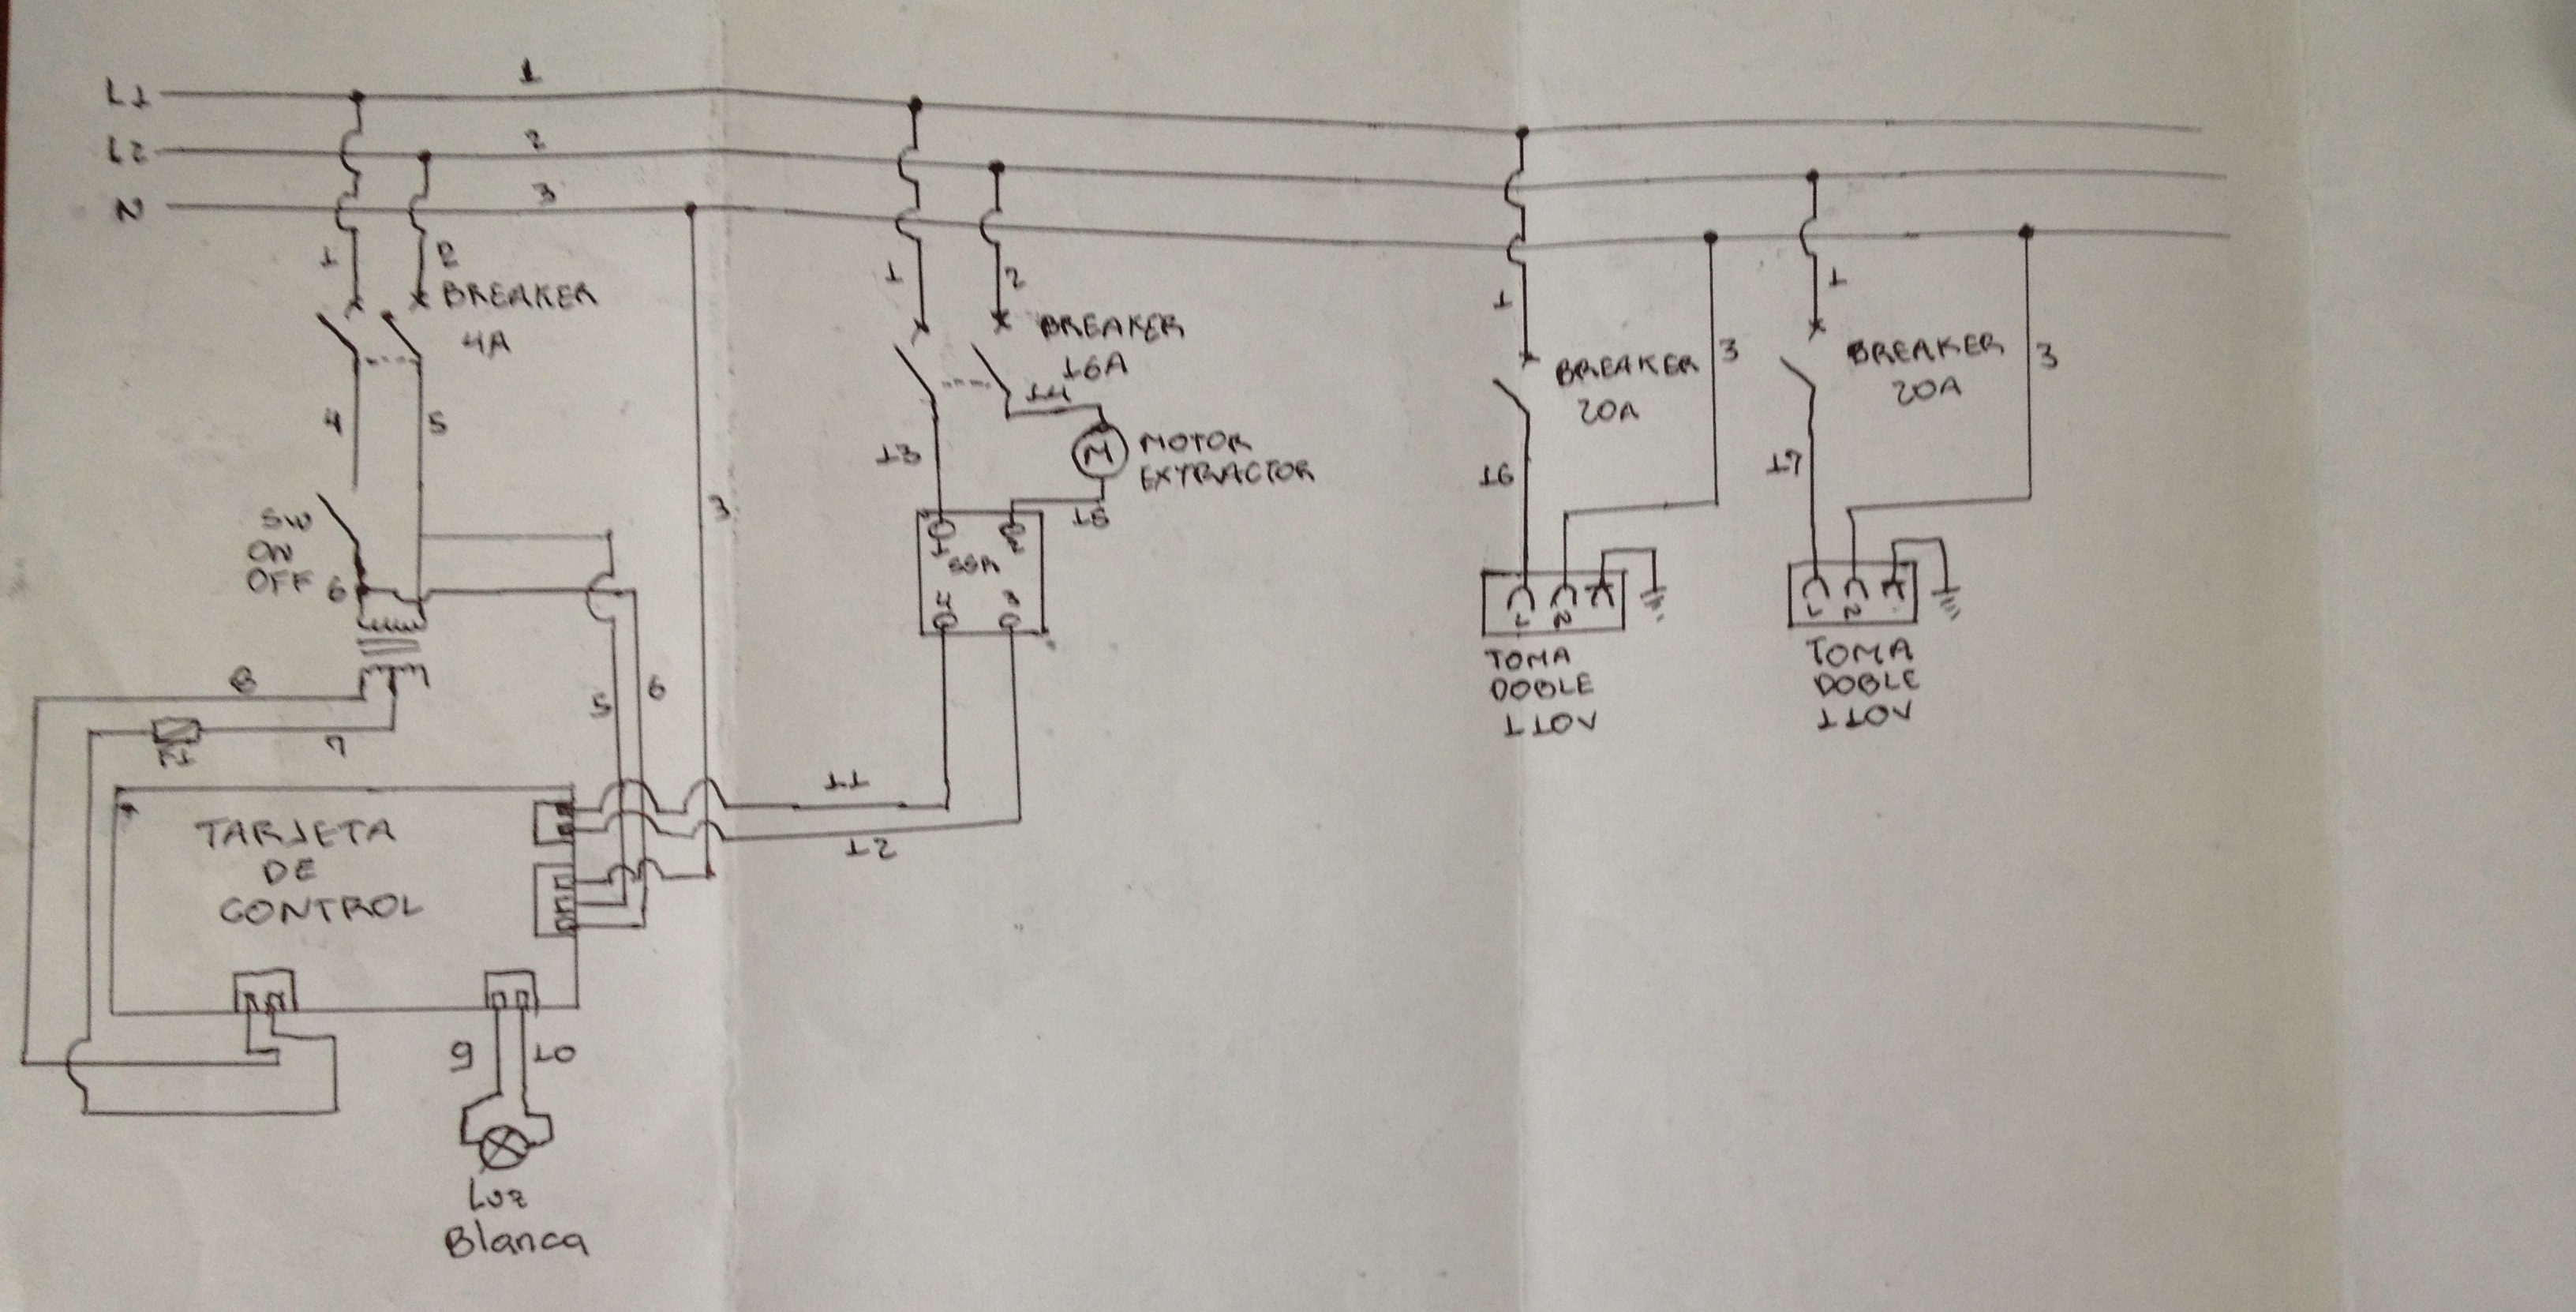 L1
L2
N
1
2
3
1
2
BREAKER
4A
4
5
SW
ON
OFF
6
8
7
F1
TARJETA
DE
CONTROL
5
6
3
9
10
Luz
Blanca
11
12
1
2
BREAKER
16A
13
14
1
2
4
3
15
M
MOTOR
EXTRACTOR
1
BREAKER
20A
16
3
L
N
TOMA
DOBLE
1
BREAKER
20A
17
3
L
N
TOMA
DOBLE